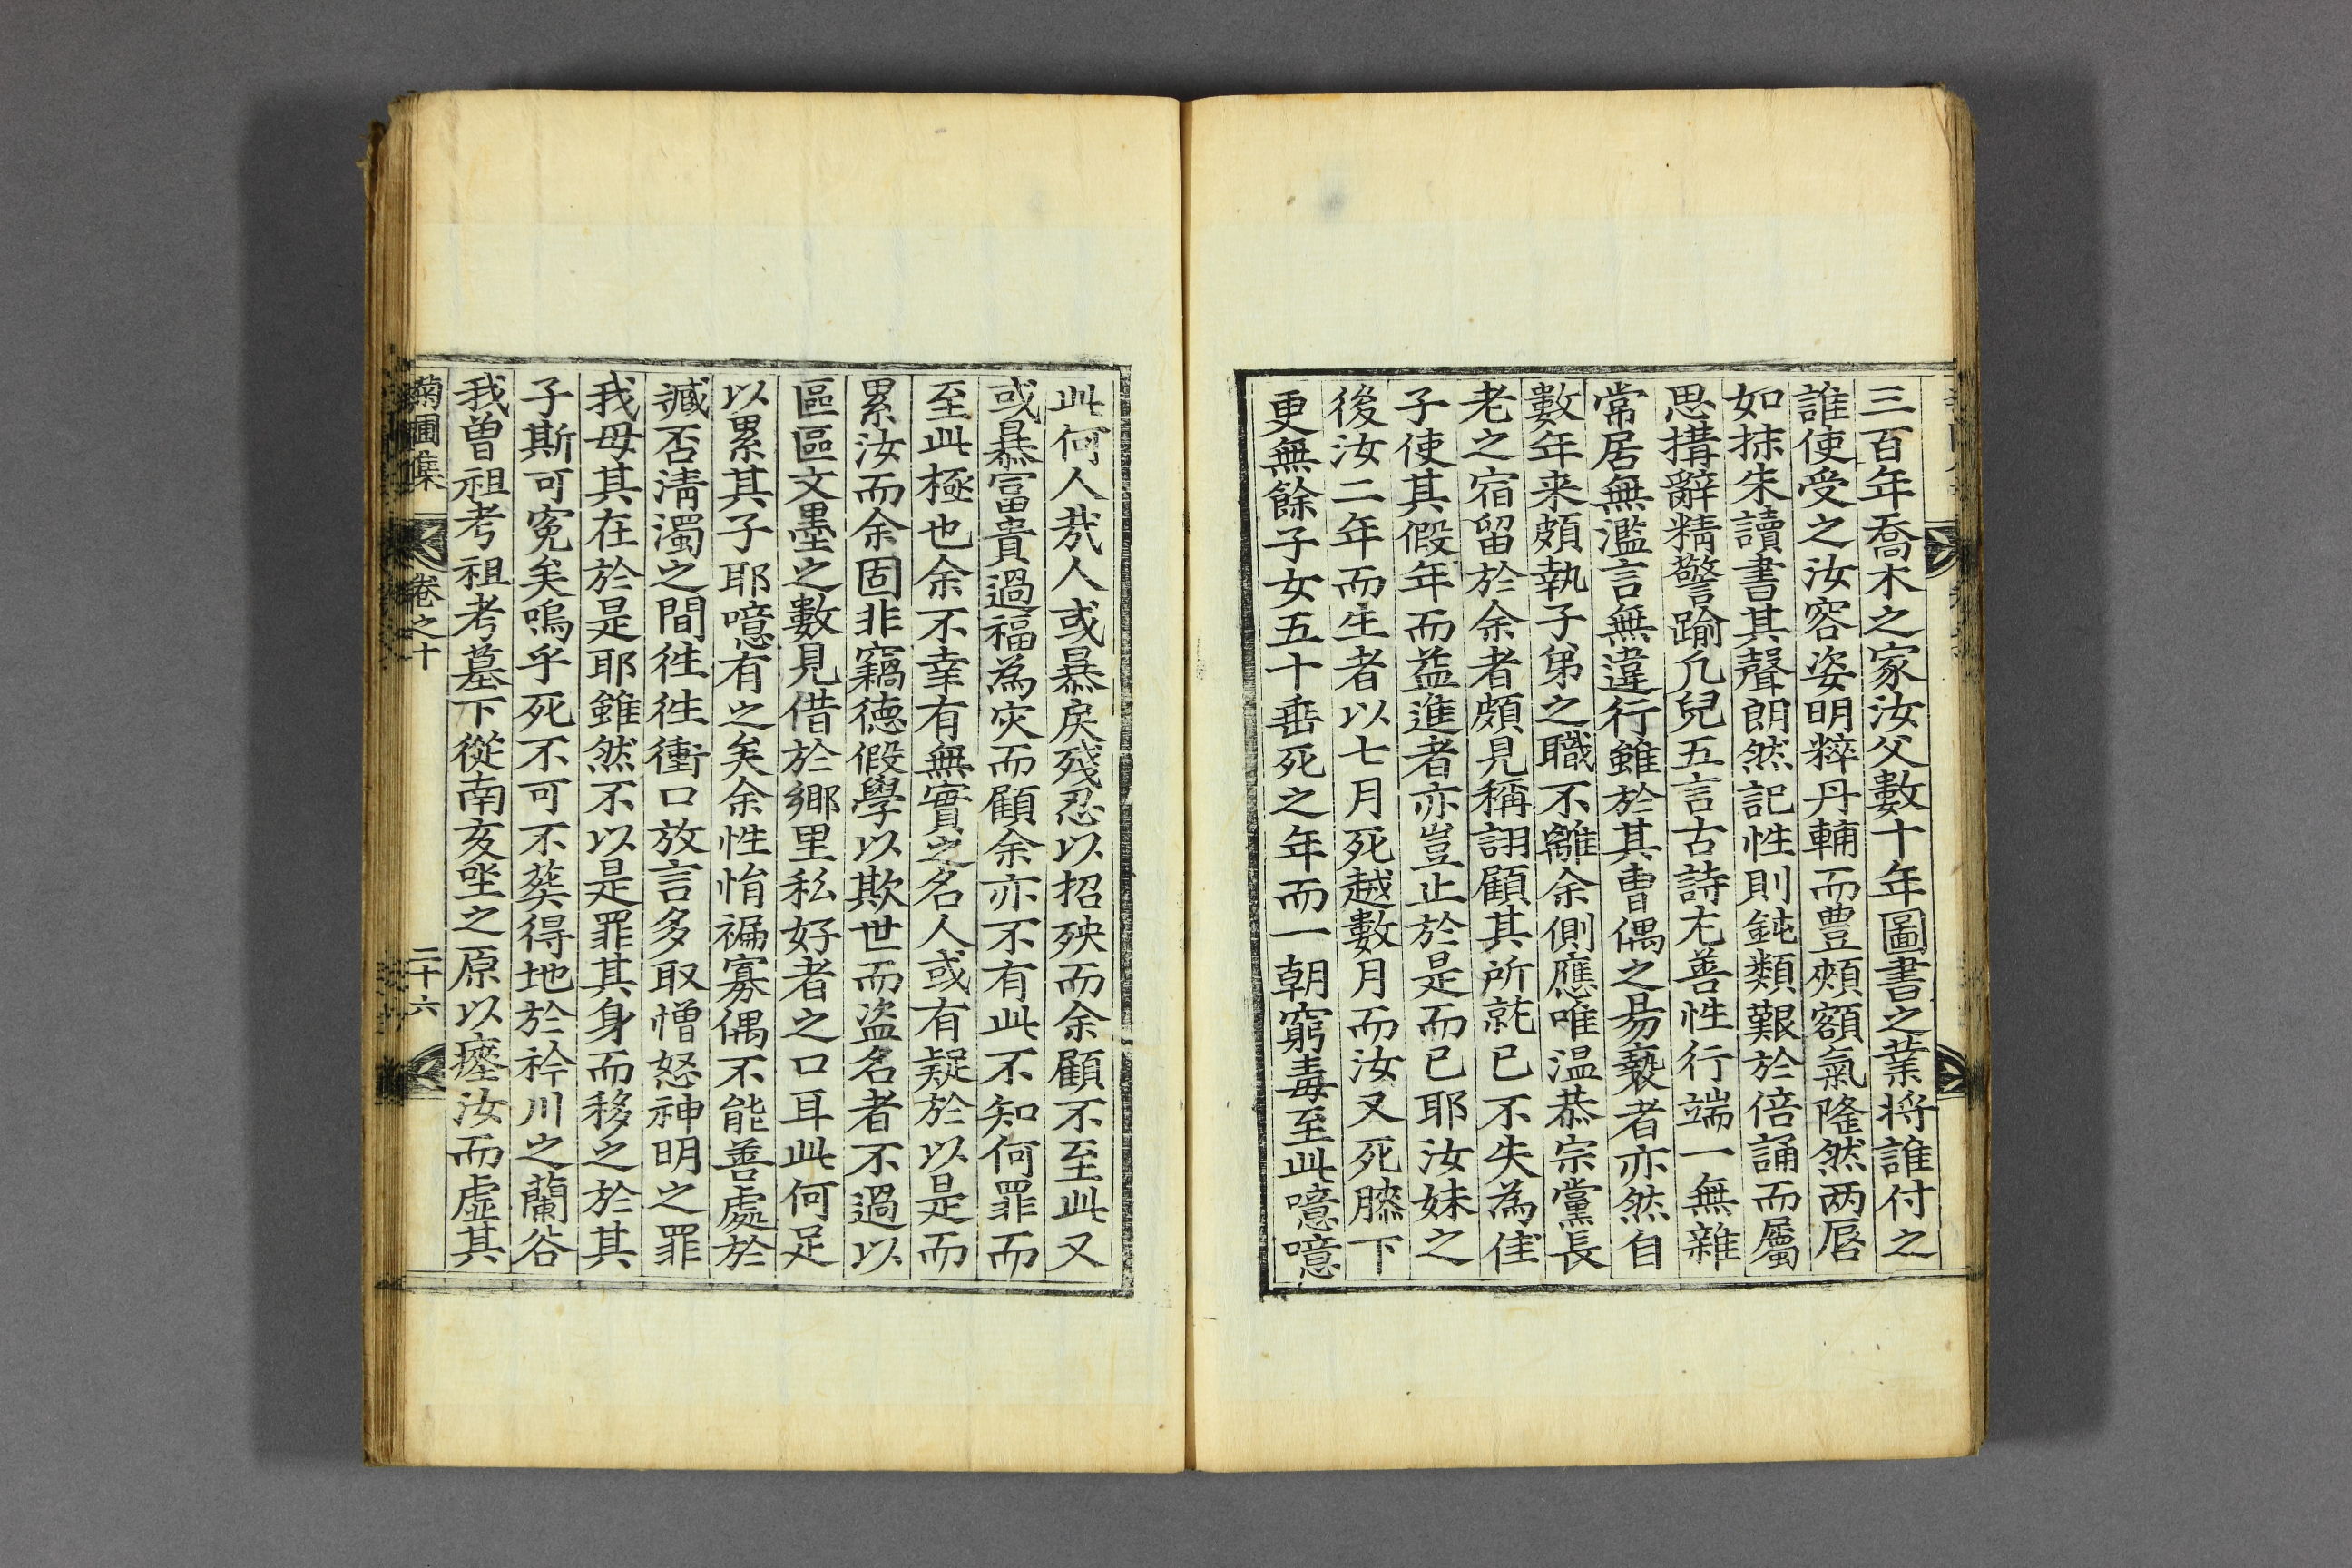 三百年喬木之家汝父數十年圖書之業将誰付之
誰使受之汝容姿明粹丹輔而豊頰額氣隆然两唇
如抹朱讀書其聲朗然記性則鈍類艱於倍誦而屬
思搆辭精警踰凢兒五言古詩尢善性行端一無雜
常居無濫言無違行雖於其曺偶之昜褻者亦然自
數年来頗執子弟之職不離余側應唯温恭宗黨長
老之宿留於余者頗見稱詡顧其所就已不失為佳
子使其假年而益進者亦豈止於是而已耶汝妹之
後汝二年而生者以七月死越數月而汝又死膝下
更無餘子女五十垂死之年而一朝窮毒至此噫噫
此何人㢤人或暴戾殘忍以招殃而余顧不至此又
或暴富貴過福為灾而顧余亦不有此不知何罪而
至此極也余不幸有無實之名人或有疑於以是而
累汝而余固非竊德假學以欺世而盗名者不過以
區區文墨之數見借於鄉里私好者之口耳此何足
以累其子耶噫有之矣余性惰褊寡偶不能善處於
臧否淸濁之間徃徃衝口放言多取憎怒神明之罪
我毋其在於是耶雖然不以是罪其身而移之於其
子斯可寃矣嗚乎死不可不葬得地於衿川之蘭谷
我曾祖考祖考墓下從南亥坐之原以瘞汝而虛其
菊圃集 卷之十 二十六